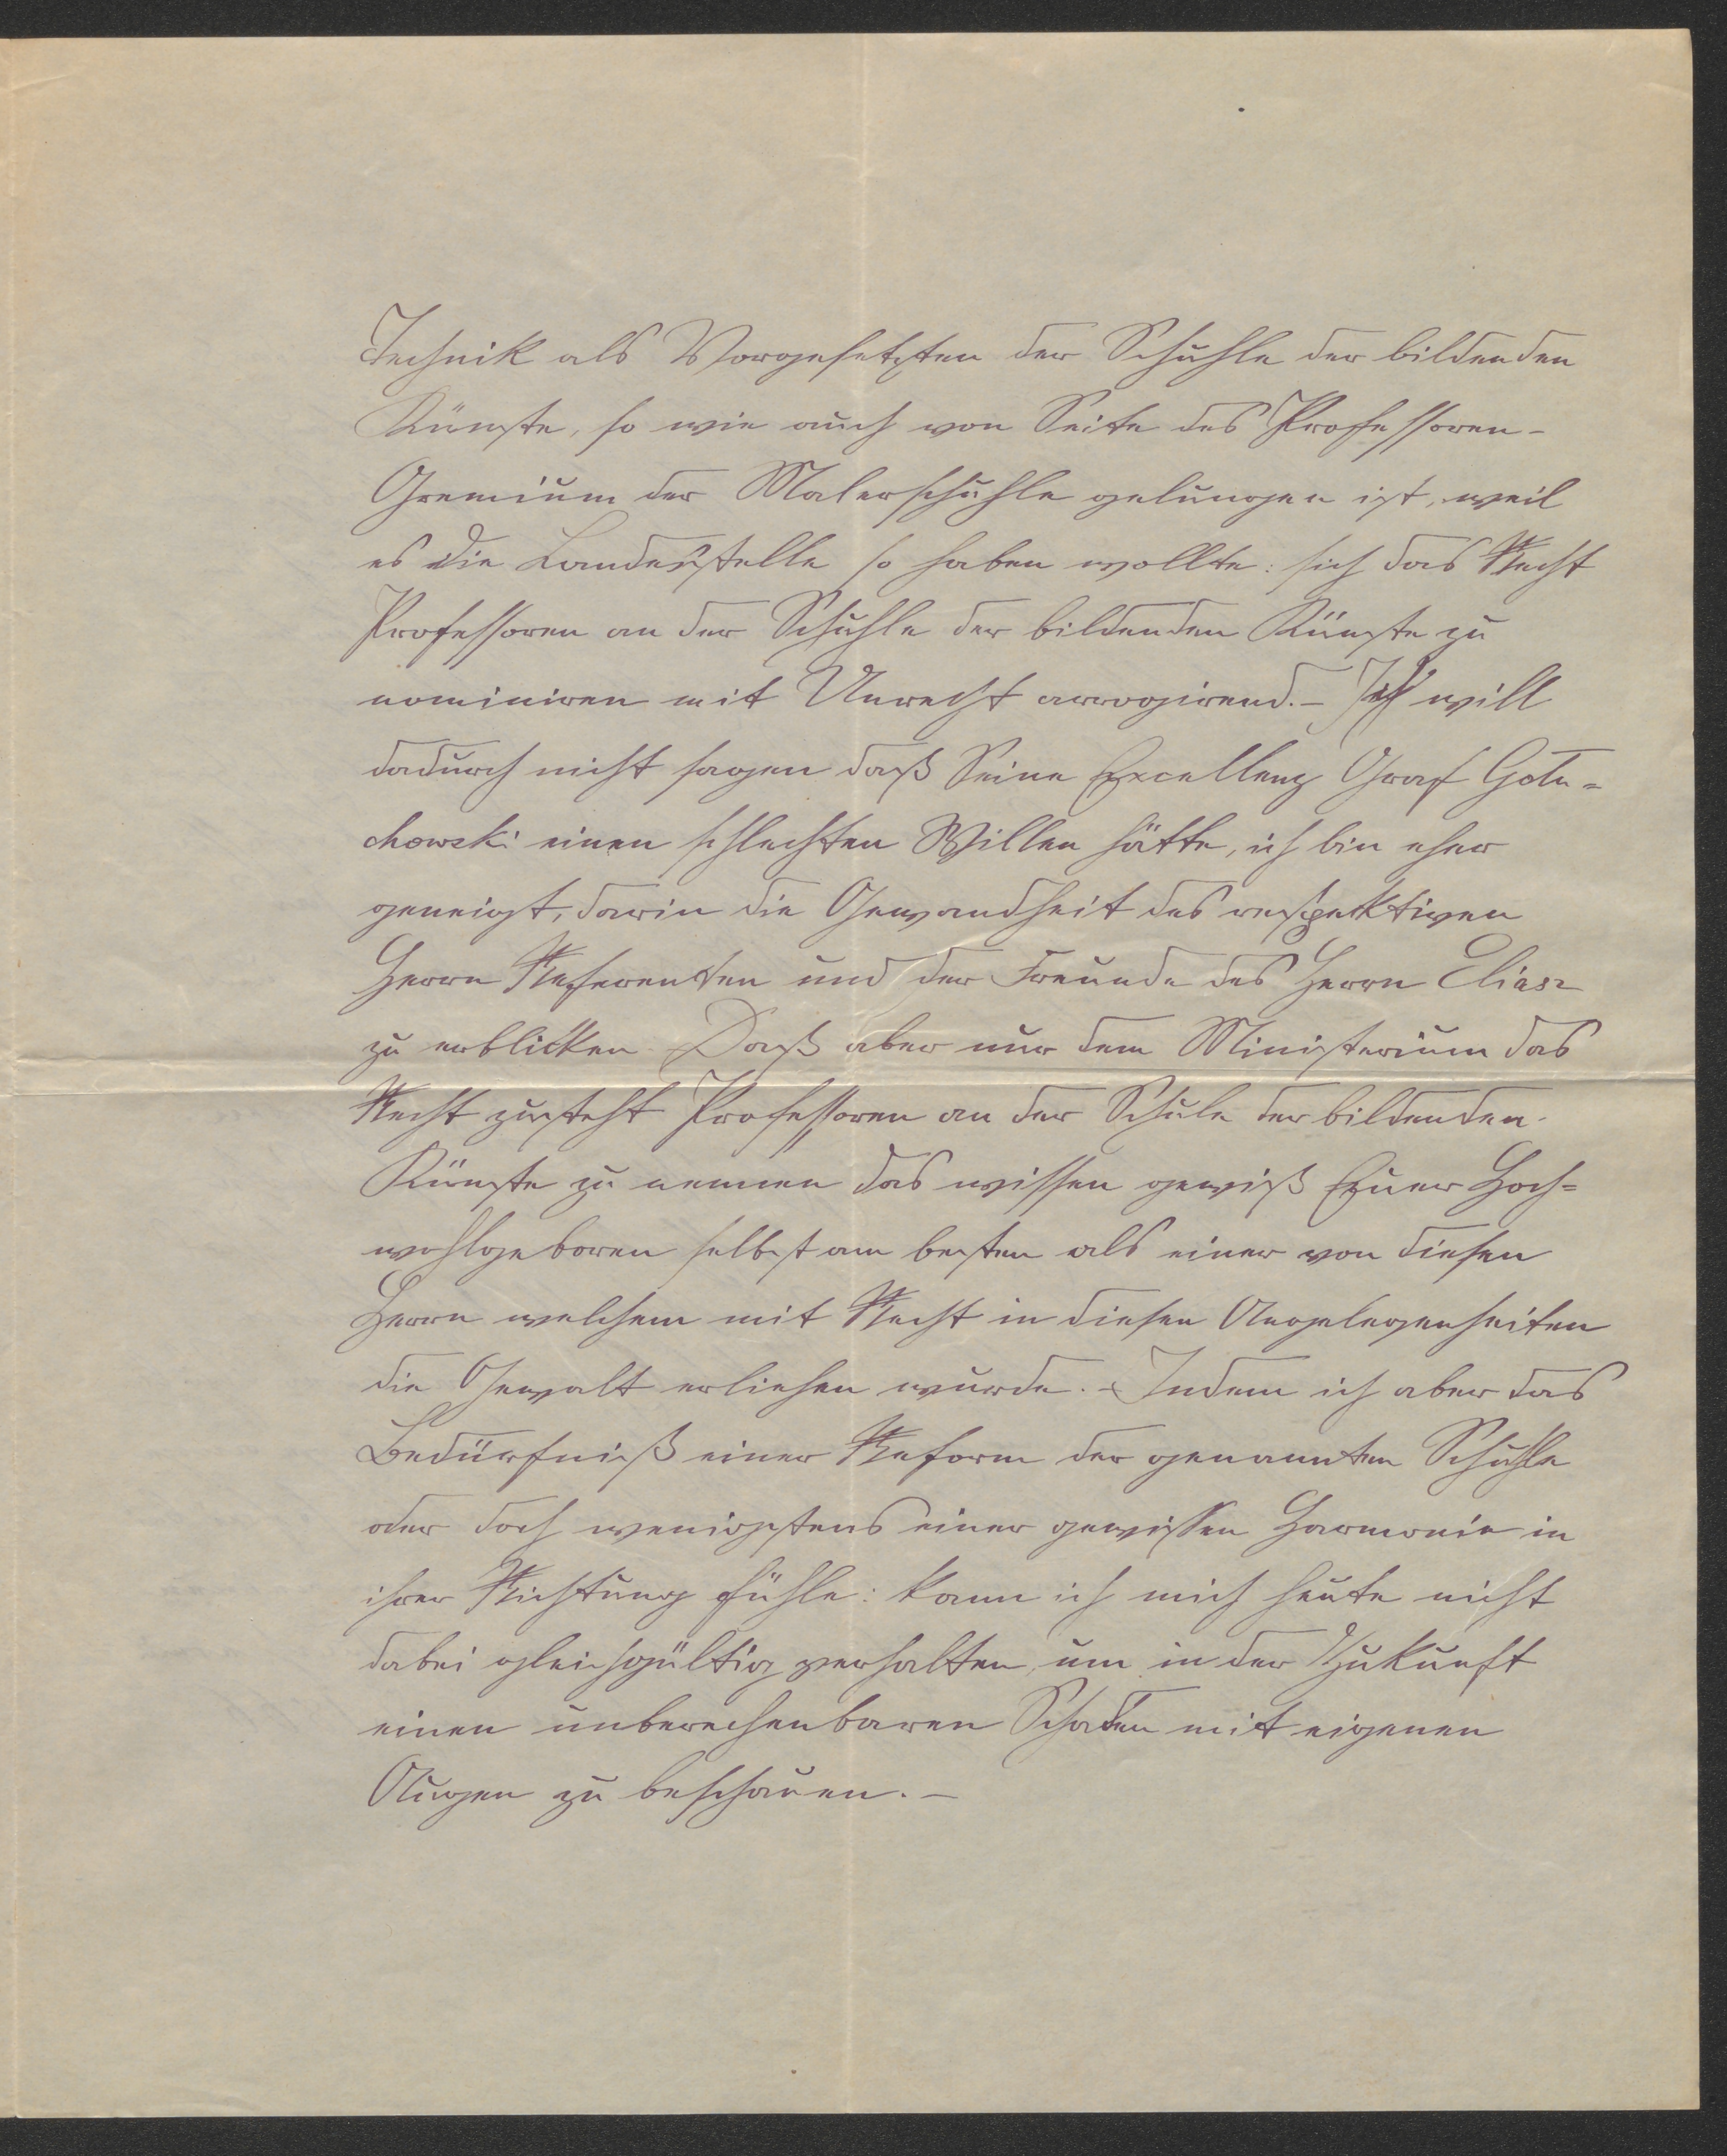 Technik als Vorgesetzten der Schuhle der bildenden
Künste, so wie auch von Seite des Professoren-
Gremium der Malerschuhle gelungen ist, weil
es die Landesstelle so haben wollte: sich das Recht
Professoren an der Schuhle der bildenden Künste zu
nominiren mit Unrecht arrogirend. – Ich will
dadurch nicht sagen daß Seine Excellenz Graf Gołu-
chowski einen schlechten Willen hätte, ich bin eher
geneigt, darin die Gewandheit des respektiven
Herrn Referenten und der Freunde des Herrn Eliasz
zu erblicken. Daß aber nur dem Ministerium das
Recht zusteht Professoren an der Schule der bildenden
Künste zu nennen das wissen gewiß Euer Hoch=
wohlgeboren selbst am besten als einer von diesen
Herrn welchem mit Recht in diesen Angelegenheiten
die Gewalt erliehen wurde. – Indem ich aber das
Bedürfniß einer Reform der genannten Schuhle
oder doch wenigstens einer gewissen Harmonie in
ihrer Richtung fühle: kann ich mich heute nicht
dabei gleichgültig verhalten, um in der Zukunft
einen unberechenbaren Schaden mit eigenen
Augen zu beschauen. –